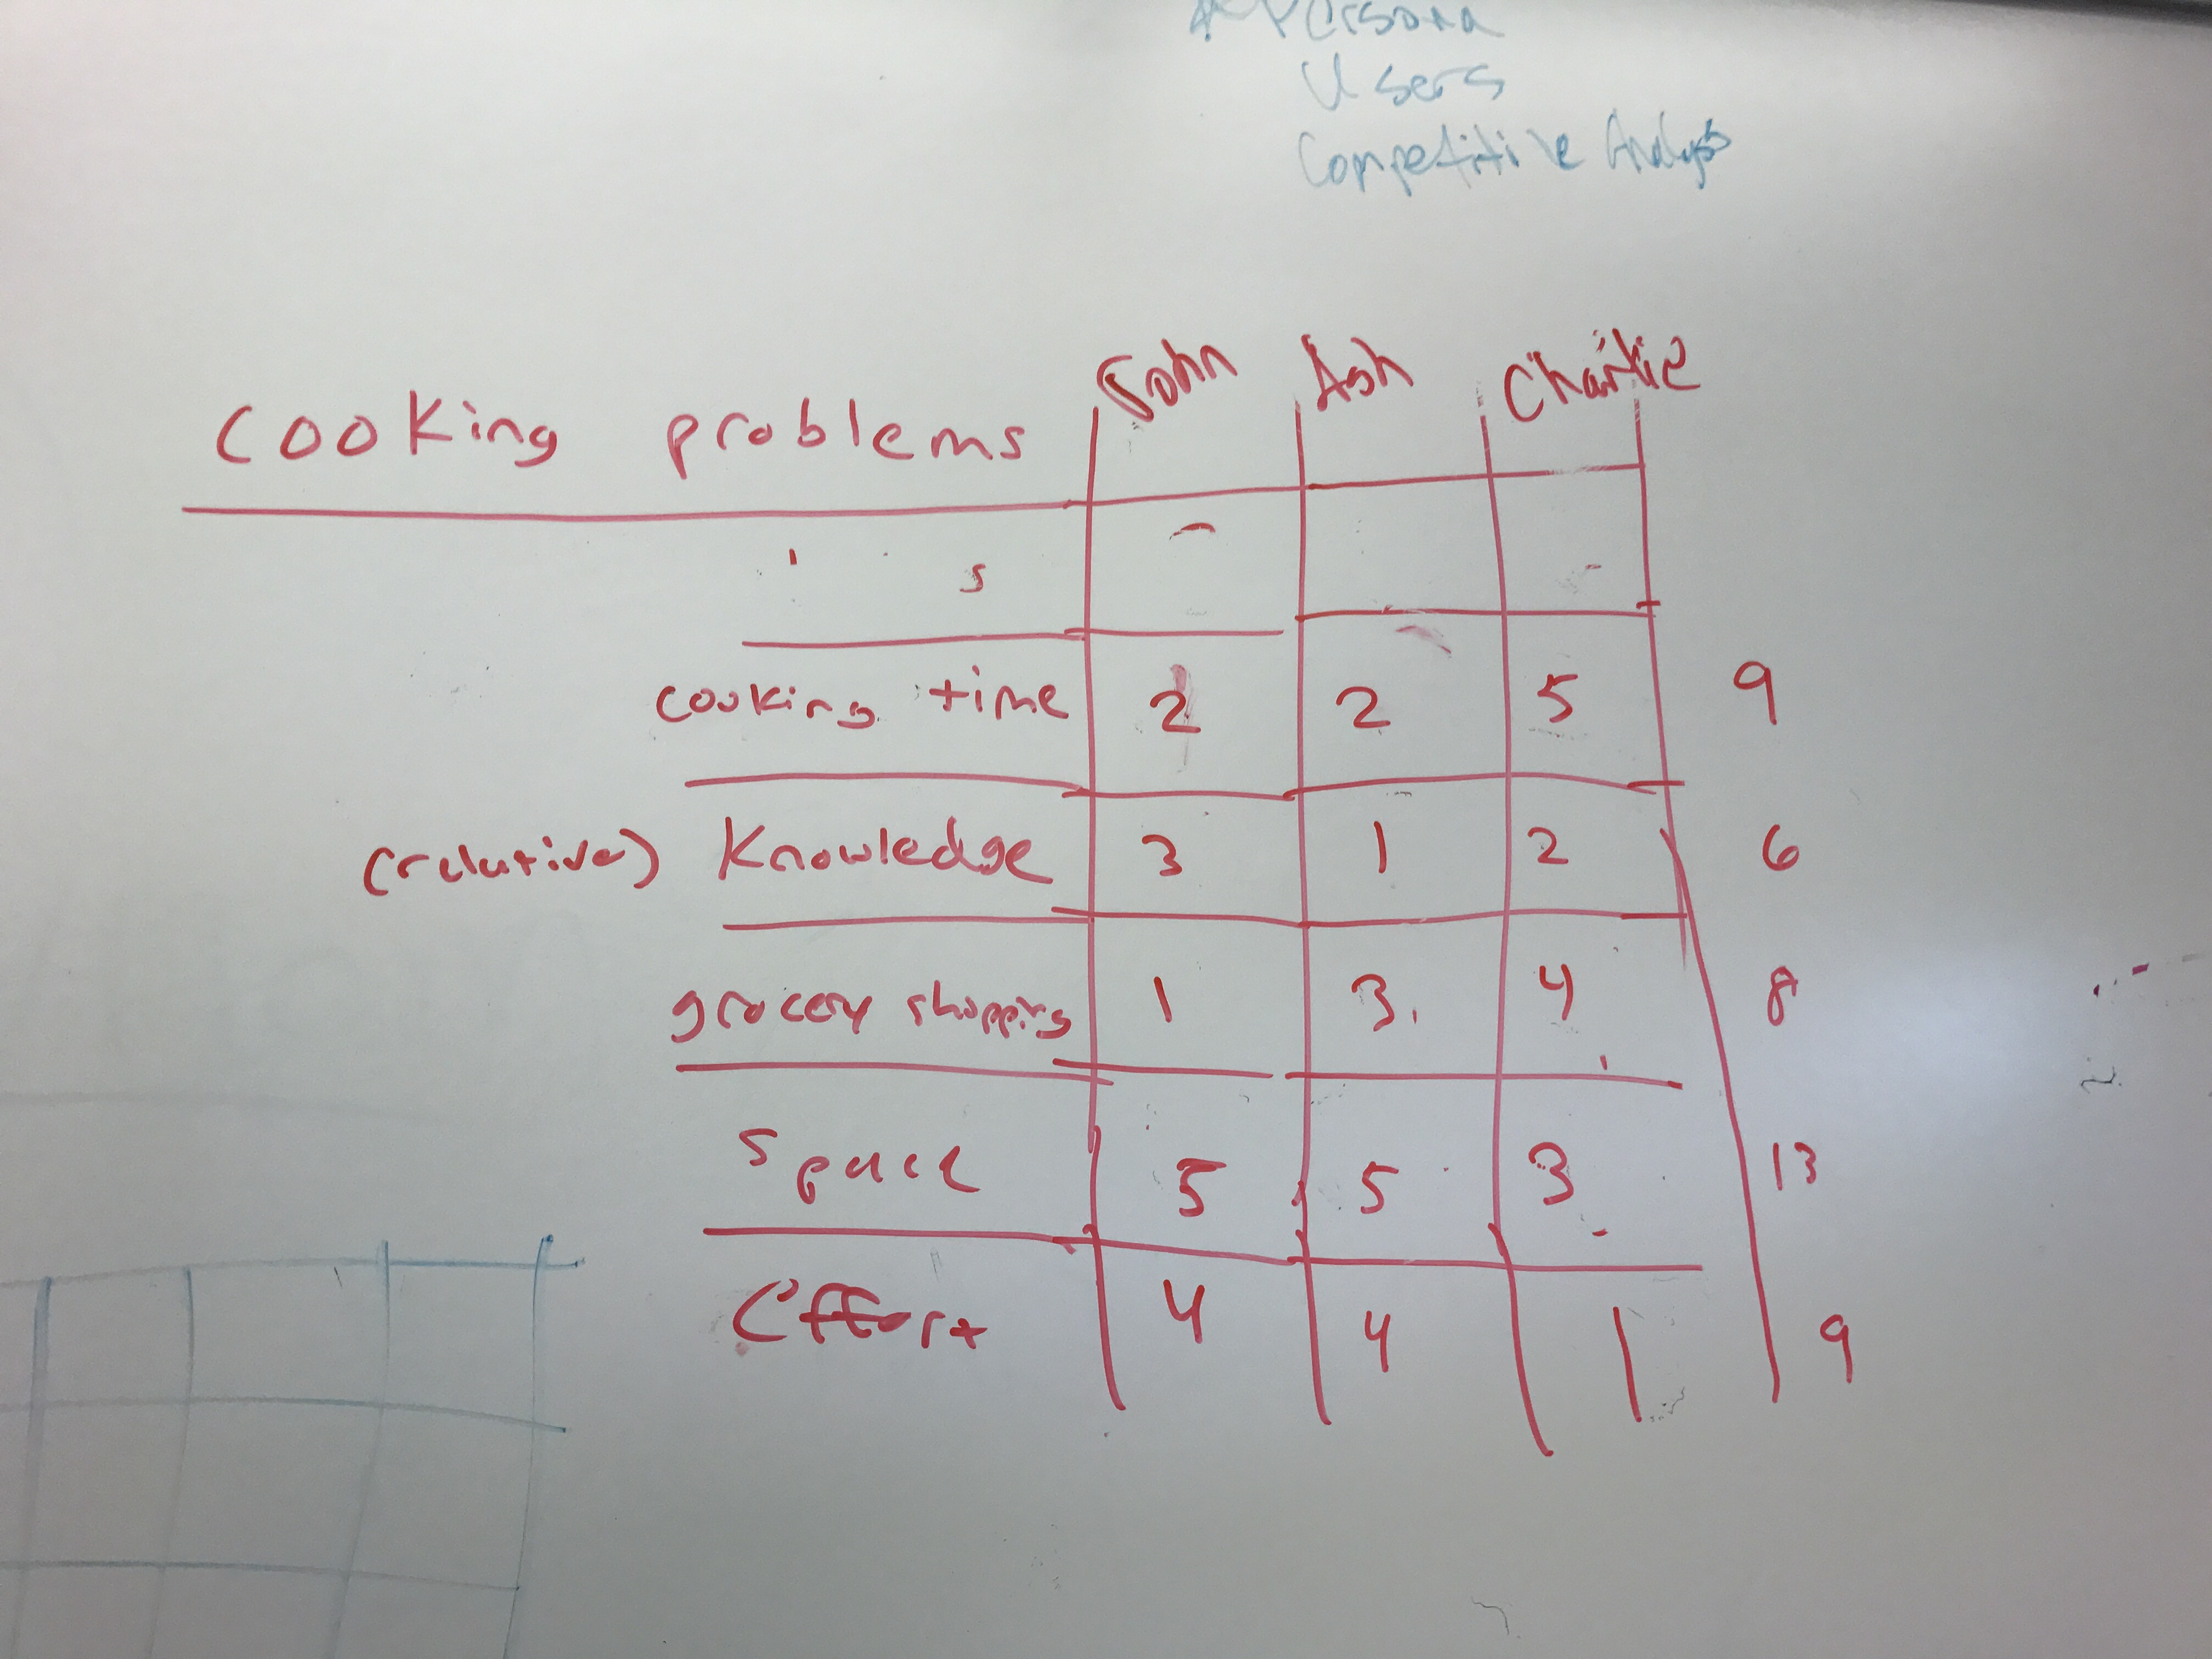 Persona
Users
Competitive Analysis
cooking problems John Ash Charlie
s
cooking time 2 2 5 9
(relative) Knowledge 3 1 2 6
grocery shopping 1 3 4 8
space 5 5 3 13
Effort 4 4 1 9